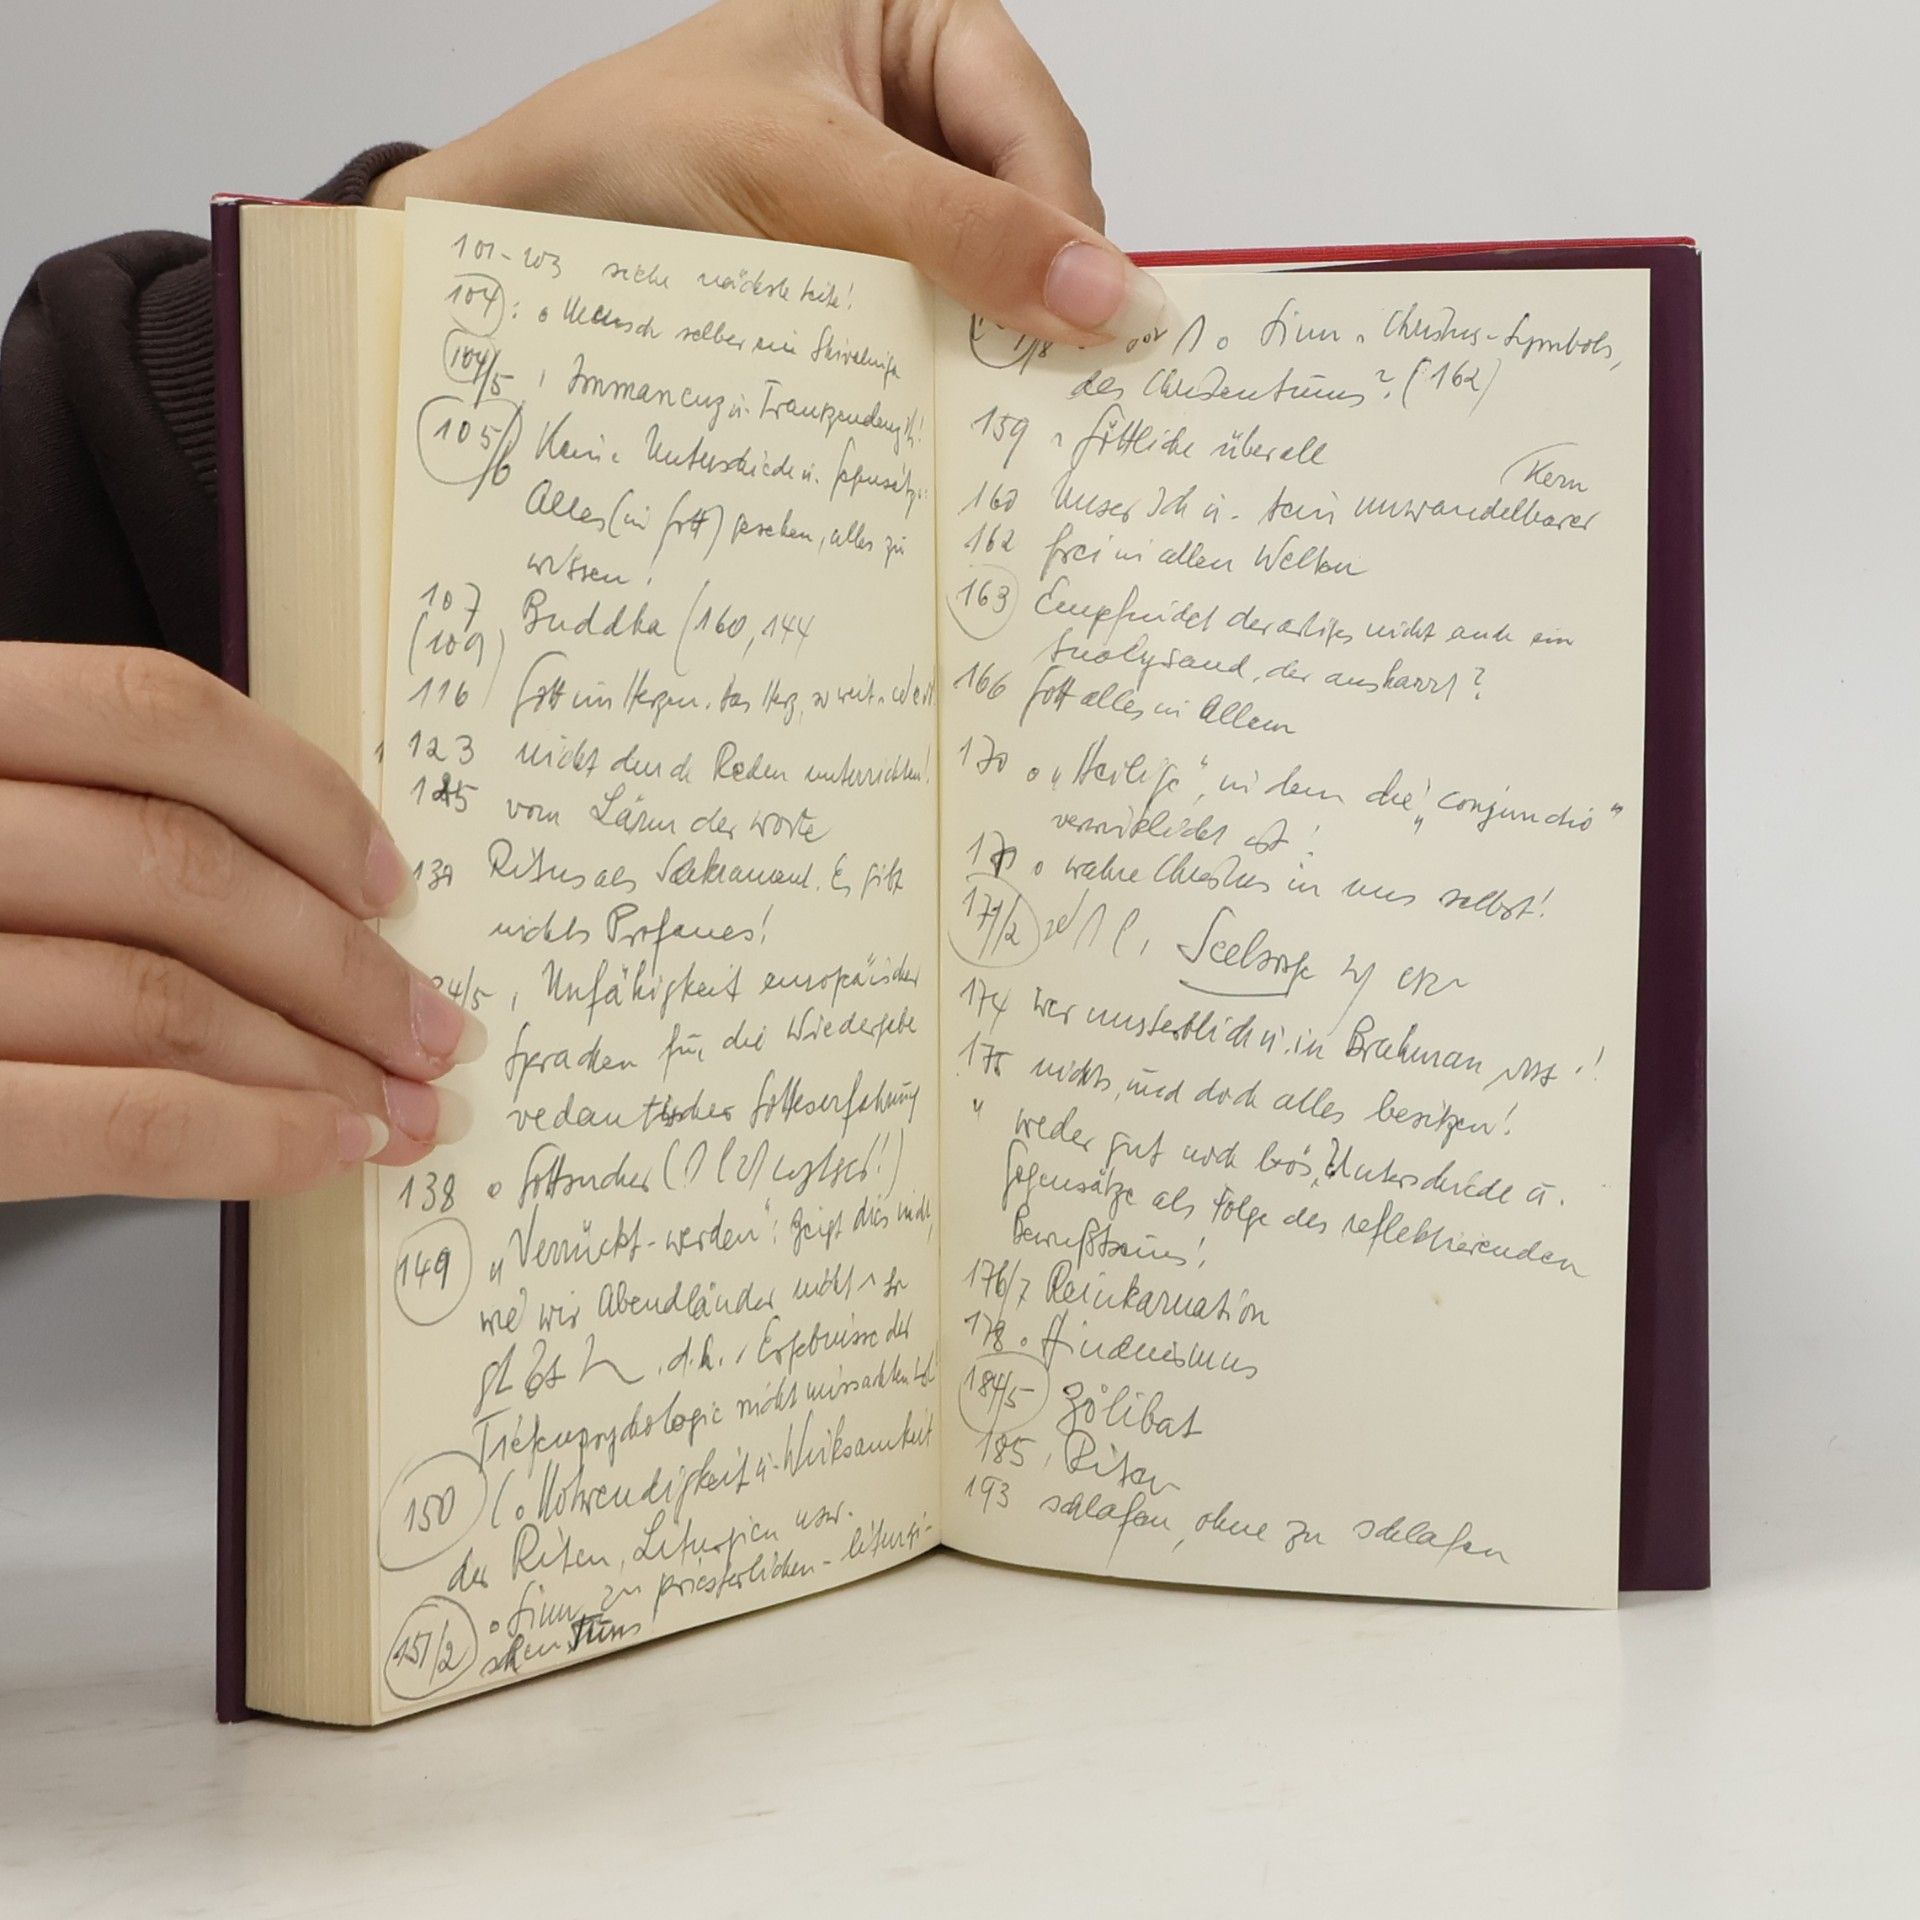 101-103 siehe nächste Seite!
104 : o Mensch selber ein
104/5 , Immanenz u. Transzendenz
105/6 Keine Unterschiede u. Gegensätze:
Alles (in Gott) gesehen, alles zu
wissen!
107 Buddha (160, 144
(109)
116 Gott im Herzen. Das Herz, so weit
123 nicht durch Reden unterrichten!
125 vom Lärm der Worte
Ritus als Sakrament. Es gibt
nichts Profanes!
34/5 , Unfähigkeit europäischer
Sprachen für die Wiedergabe
vedantischer Gotteserfahrung
138 o Gottsucher
149 „Verrückt-werden“: zeigt dies nicht,
wie wir Abendländer nicht
d.h. , Ergebnisse der
Tiefenpsychologie nicht missachten
150 (o Notwendigkeit u. Wirksamkeit
der Riten, Liturgien usw.
151/2 o Sinn zu priesterlichen- liturgi-
schen Tuns
/8 o Sinn Christus-Symbols,
des Christentums? (162)
159 Göttliche überall
Kern
160 Unser Ich u. sein unwandelbarer
162 frei in allen Welten
163 Empfindet derartiges nicht auch ein
Analysand, der ausharrt?
166 Gott alles in Allem
170 o „Heilige“, in dem die „conjunctio“
verwirklicht ist!
o wahre Christus in uns selbst!
171/2 Seelsorge
174 wer unsterblich u. in Brahman ist!
175 nichts, und doch alles besitzen!
" weder gut noch bös, Unterschiede u.
Gegensätze als Folge des reflektierenden
Bewußtseins!
176/7 Reinkarnation
178 o Hinduismus
184/5 Zölibat
185 , Riten
193 schlafen, ohne zu schlafen